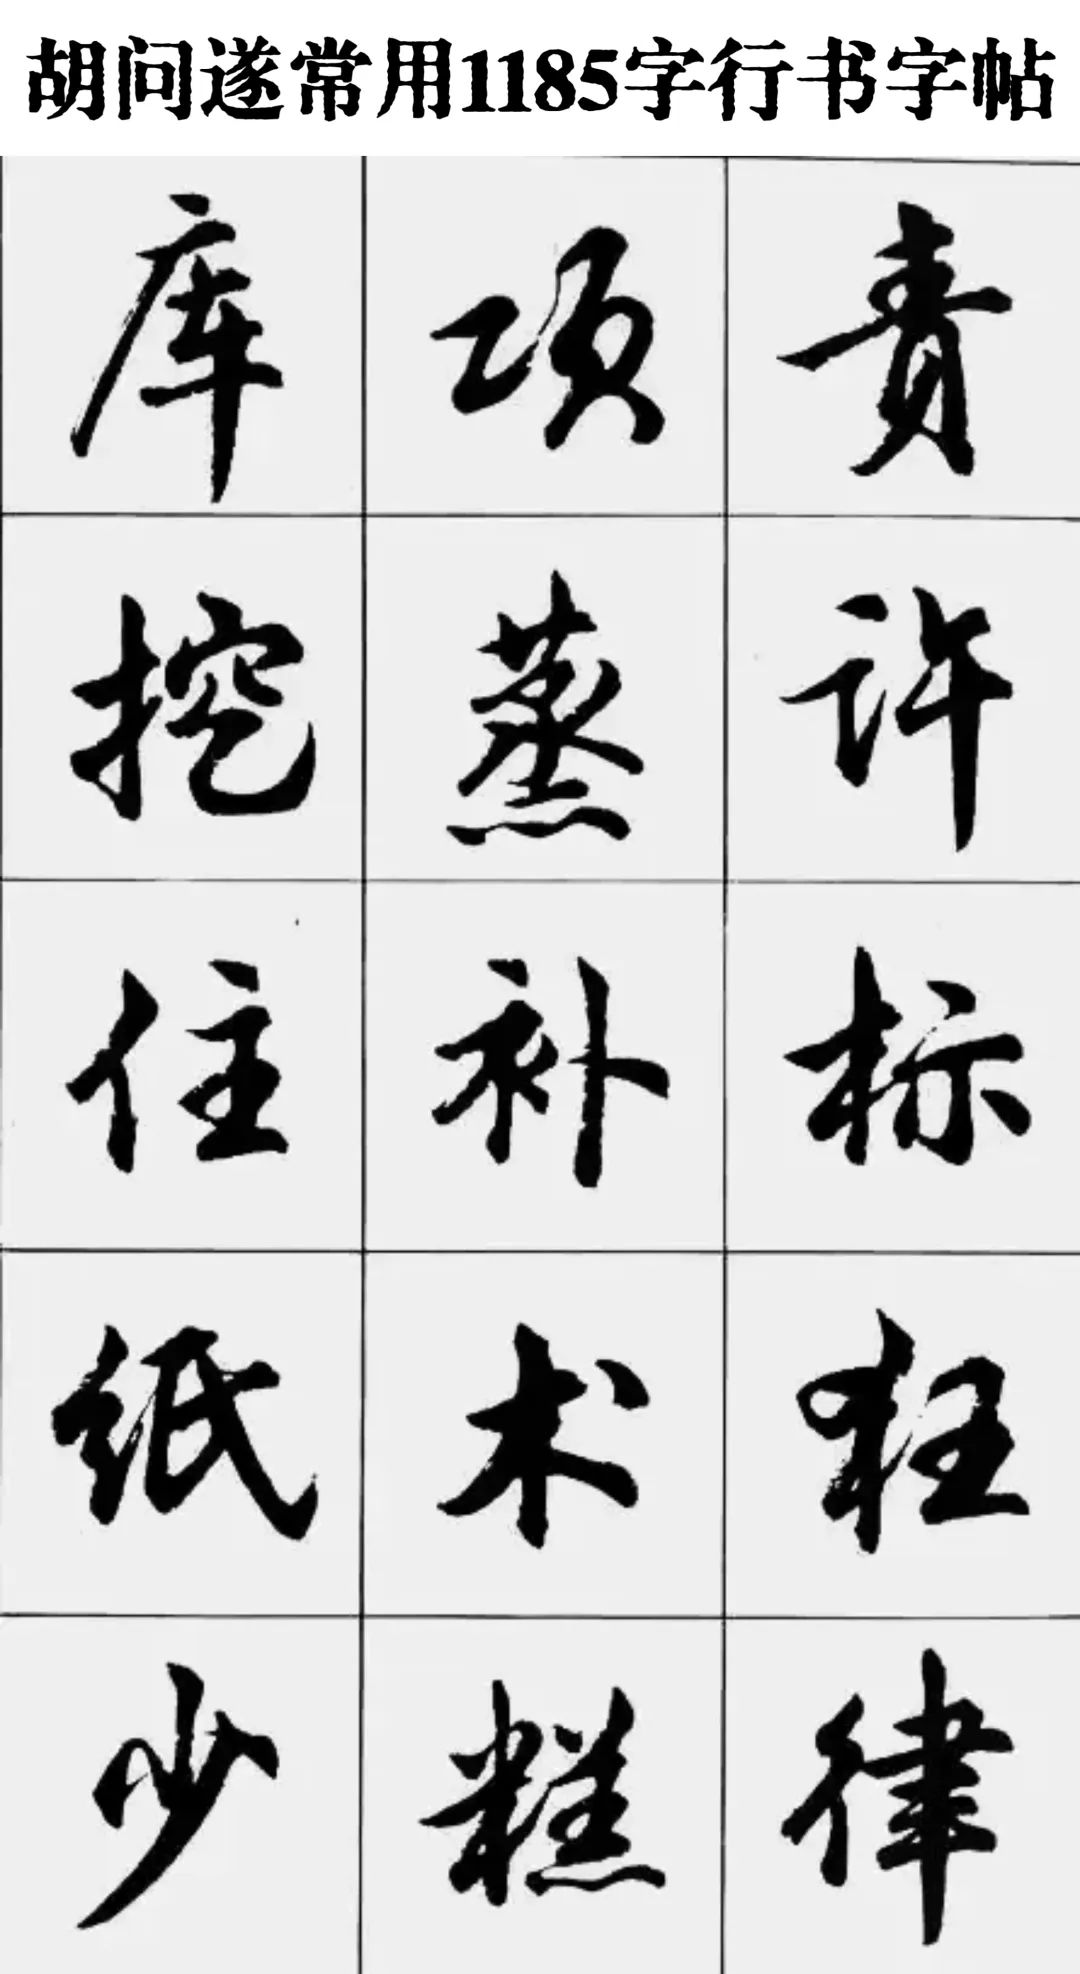 胡问遂常用1185字行书字帖
库 项 责
挖 蒸 许
住 补 标
纸 术 狂
少 糕 律